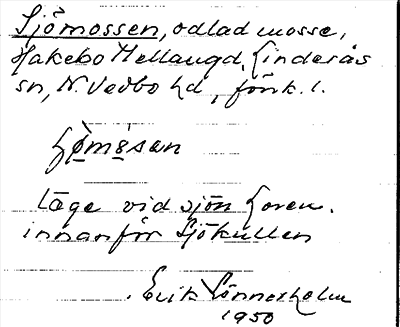 Sjömossen, odlad mosse,
Hakebo Mellangd, Linderås
sn, N. Vedbo hd, Jönk. l.
läge vid sjön Loren.
innanför Sjökullen
Erik Lönnerholm
1950